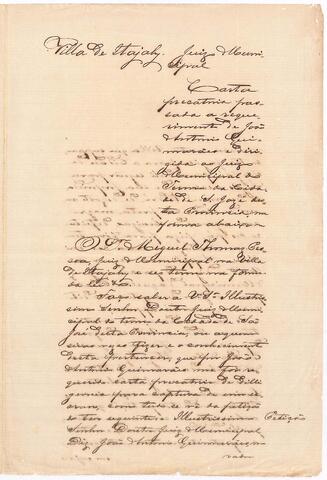 Villa de Itajahy. Juizo Muni-
cipal
Carta
precatoria pas-
sada a reque-
rimento de João
Antonio Gui-
marães e diri-
gida ao Juizo
Municipal do
Termo da Cida-
de de S. José des-
ta Provincia, na
forma abaixo
O Dr. Miguel Thomas Pes-
soa, Juiz Municipal na Villa
de Itajahy e seu termo na forma
da Lei &a.
Faço saber a V. Sa. Illustris-
simo Senhor Doutor Juiz Muni-
cipal do termo da Cidade de São
José desta Provincia, ou a quem
suas vezes fizer e o conhecimento
desta pertencer, que por João
Antonio Guimarães me foi re-
querida carta precatoria de dili-
gencia para captura de um es-
cravo, como tudo se vê da petição
do theor seguinte: Illustrissimo Petição
Senhor Doutor Juiz Municipal
Diz João Antonio Guimarães, mo-
rador